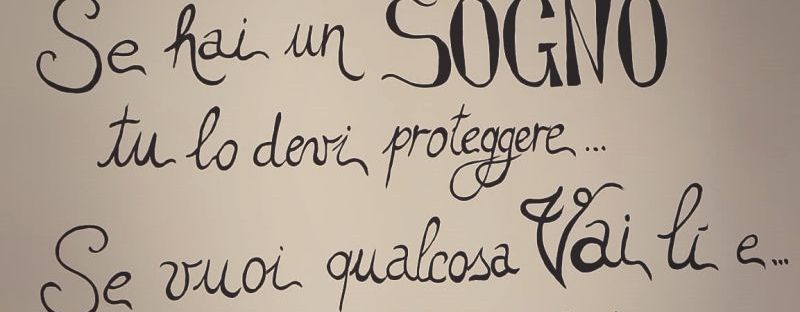 Se hai un SOGNO
tu lo devi proteggere...
Se vuoi qualcosa Vai lí e...